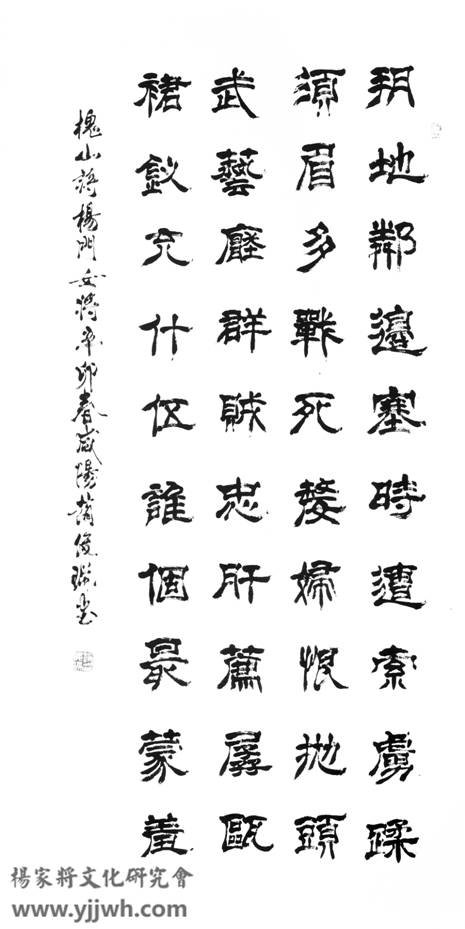 朔地鄰邊塞時遭索虜蹂
須眉多戰死嫠婦恨拋頭
武藝群賊忠肝薦孱甌
裙釵充什伍誰個最蒙羞
槐山詩楊門女將辛卯春咸陽俊書
楊家將文化研究會
www.yjjwh.com